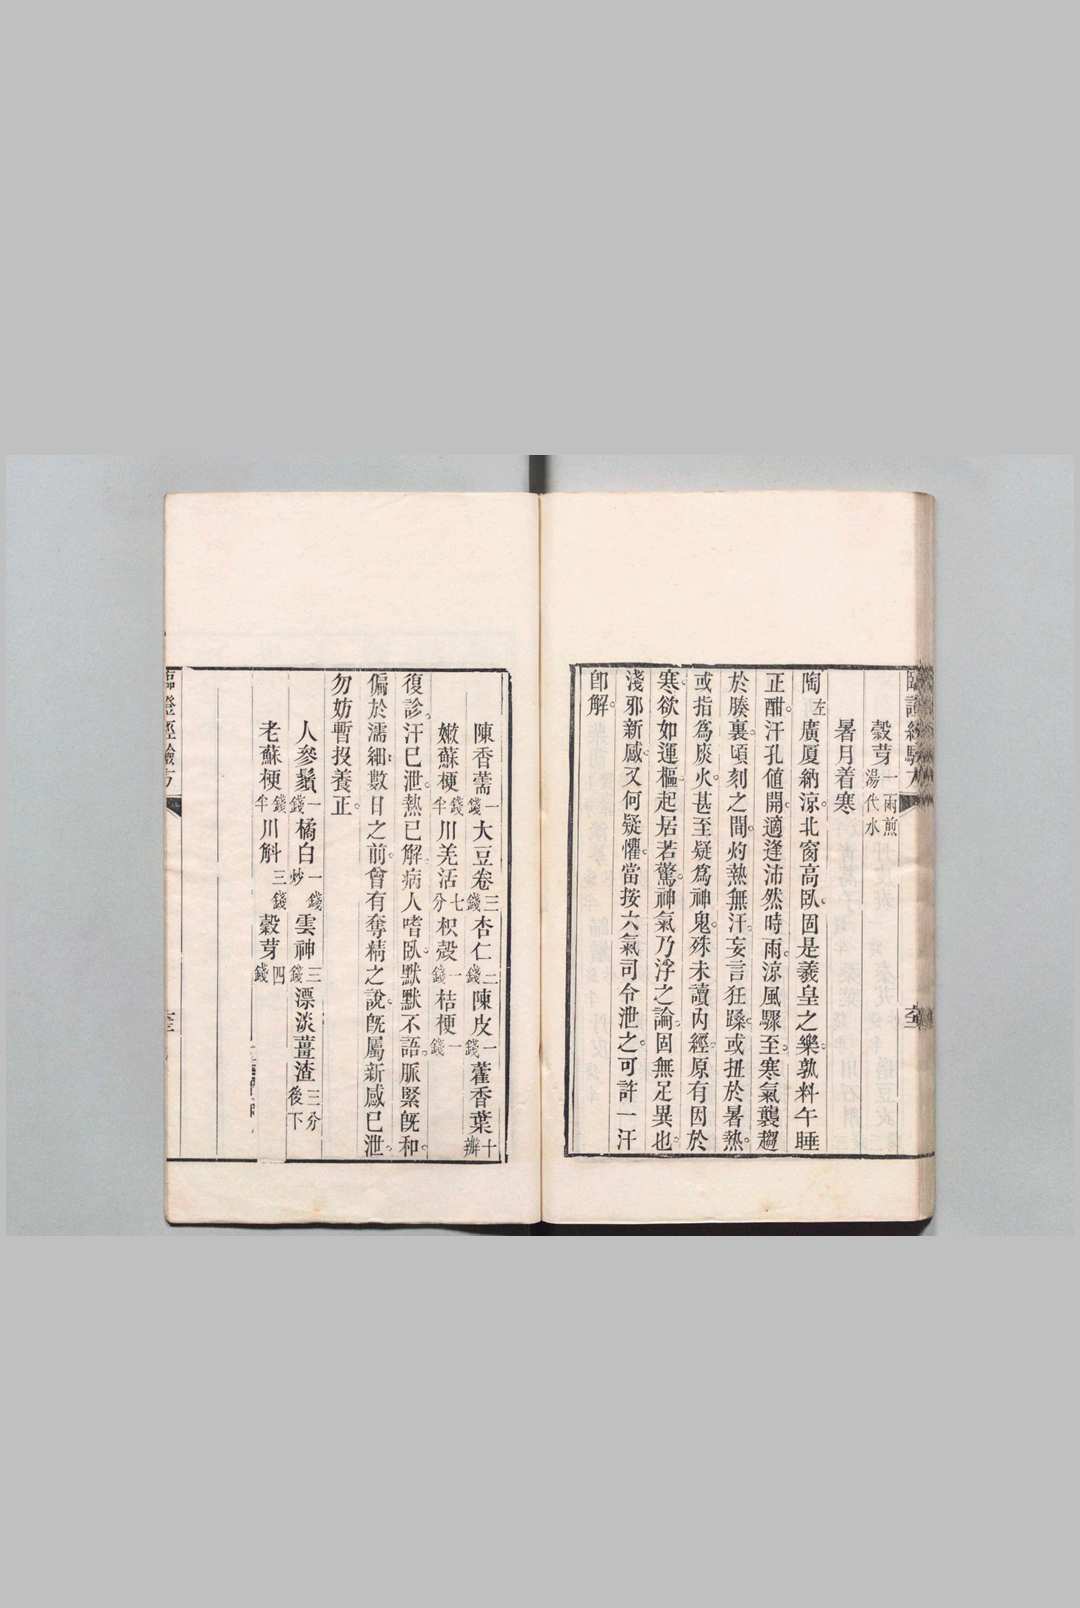 穀芽一兩煎湯代水
暑月着寒
陶左廣厦納涼北窗高臥固是羲皇之樂孰料午睡
正酣汗孔值開適逢沛然時雨涼風驟至寒氣襲趨
於腠裏頃刻之間灼熱無汗妄言狂躁或扭於暑熱
或指爲痰火甚至疑爲神鬼殊未讀內經原有因於
寒欲如運樞起居若驚神氣乃浮之論固無足異也
淺邪新感又何疑懼當按六氣司令泄之可許一汗
卽解
陳香薷一錢大豆卷三錢杏仁二錢陳皮一錢藿香葉十瓣
嫩蘇梗錢半川羌活七分枳殼一錢桔梗一錢
復診汗已泄熱已解病人嗜臥默默不語脈緊旣和
偏於濡細數日之前曾有奪精之說旣屬新感已泄
勿妨暫投養正
人參鬚一錢橘白一錢炒雲神三錢漂淡薑渣三分後下
老蘇梗錢半川斛三錢穀芽四錢